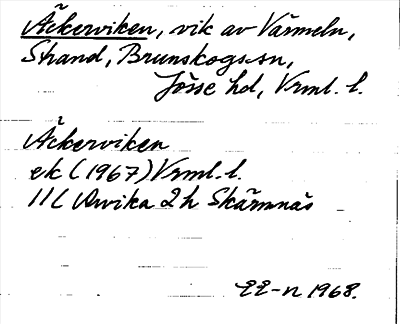 Åckerviken, vik av Värmeln,
Strand, Brunskogs sn,
Jösse hd, Vrml. l.
Åckerviken
ek (1967) Vrml. l.
11C Arvika 2h Skärmnäs
EE-n 1968.